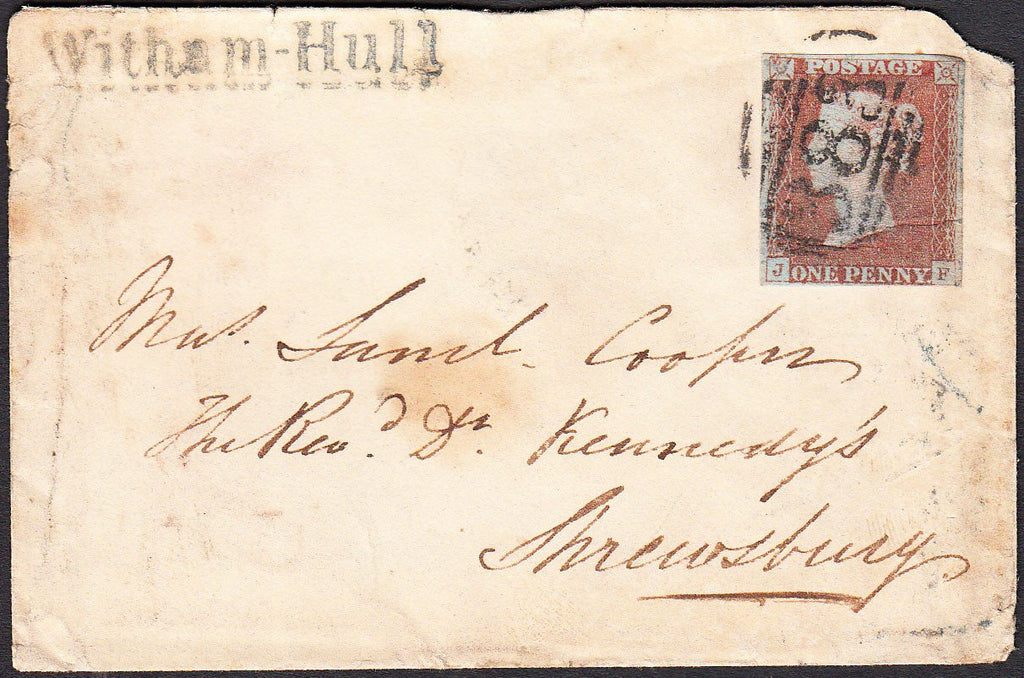 Witham-Hull
POSTAGE
383
J ONE PENNY F
Mrs. Saml. Cooper
The Revd. Dr. Kennedy's
Shrewsbury